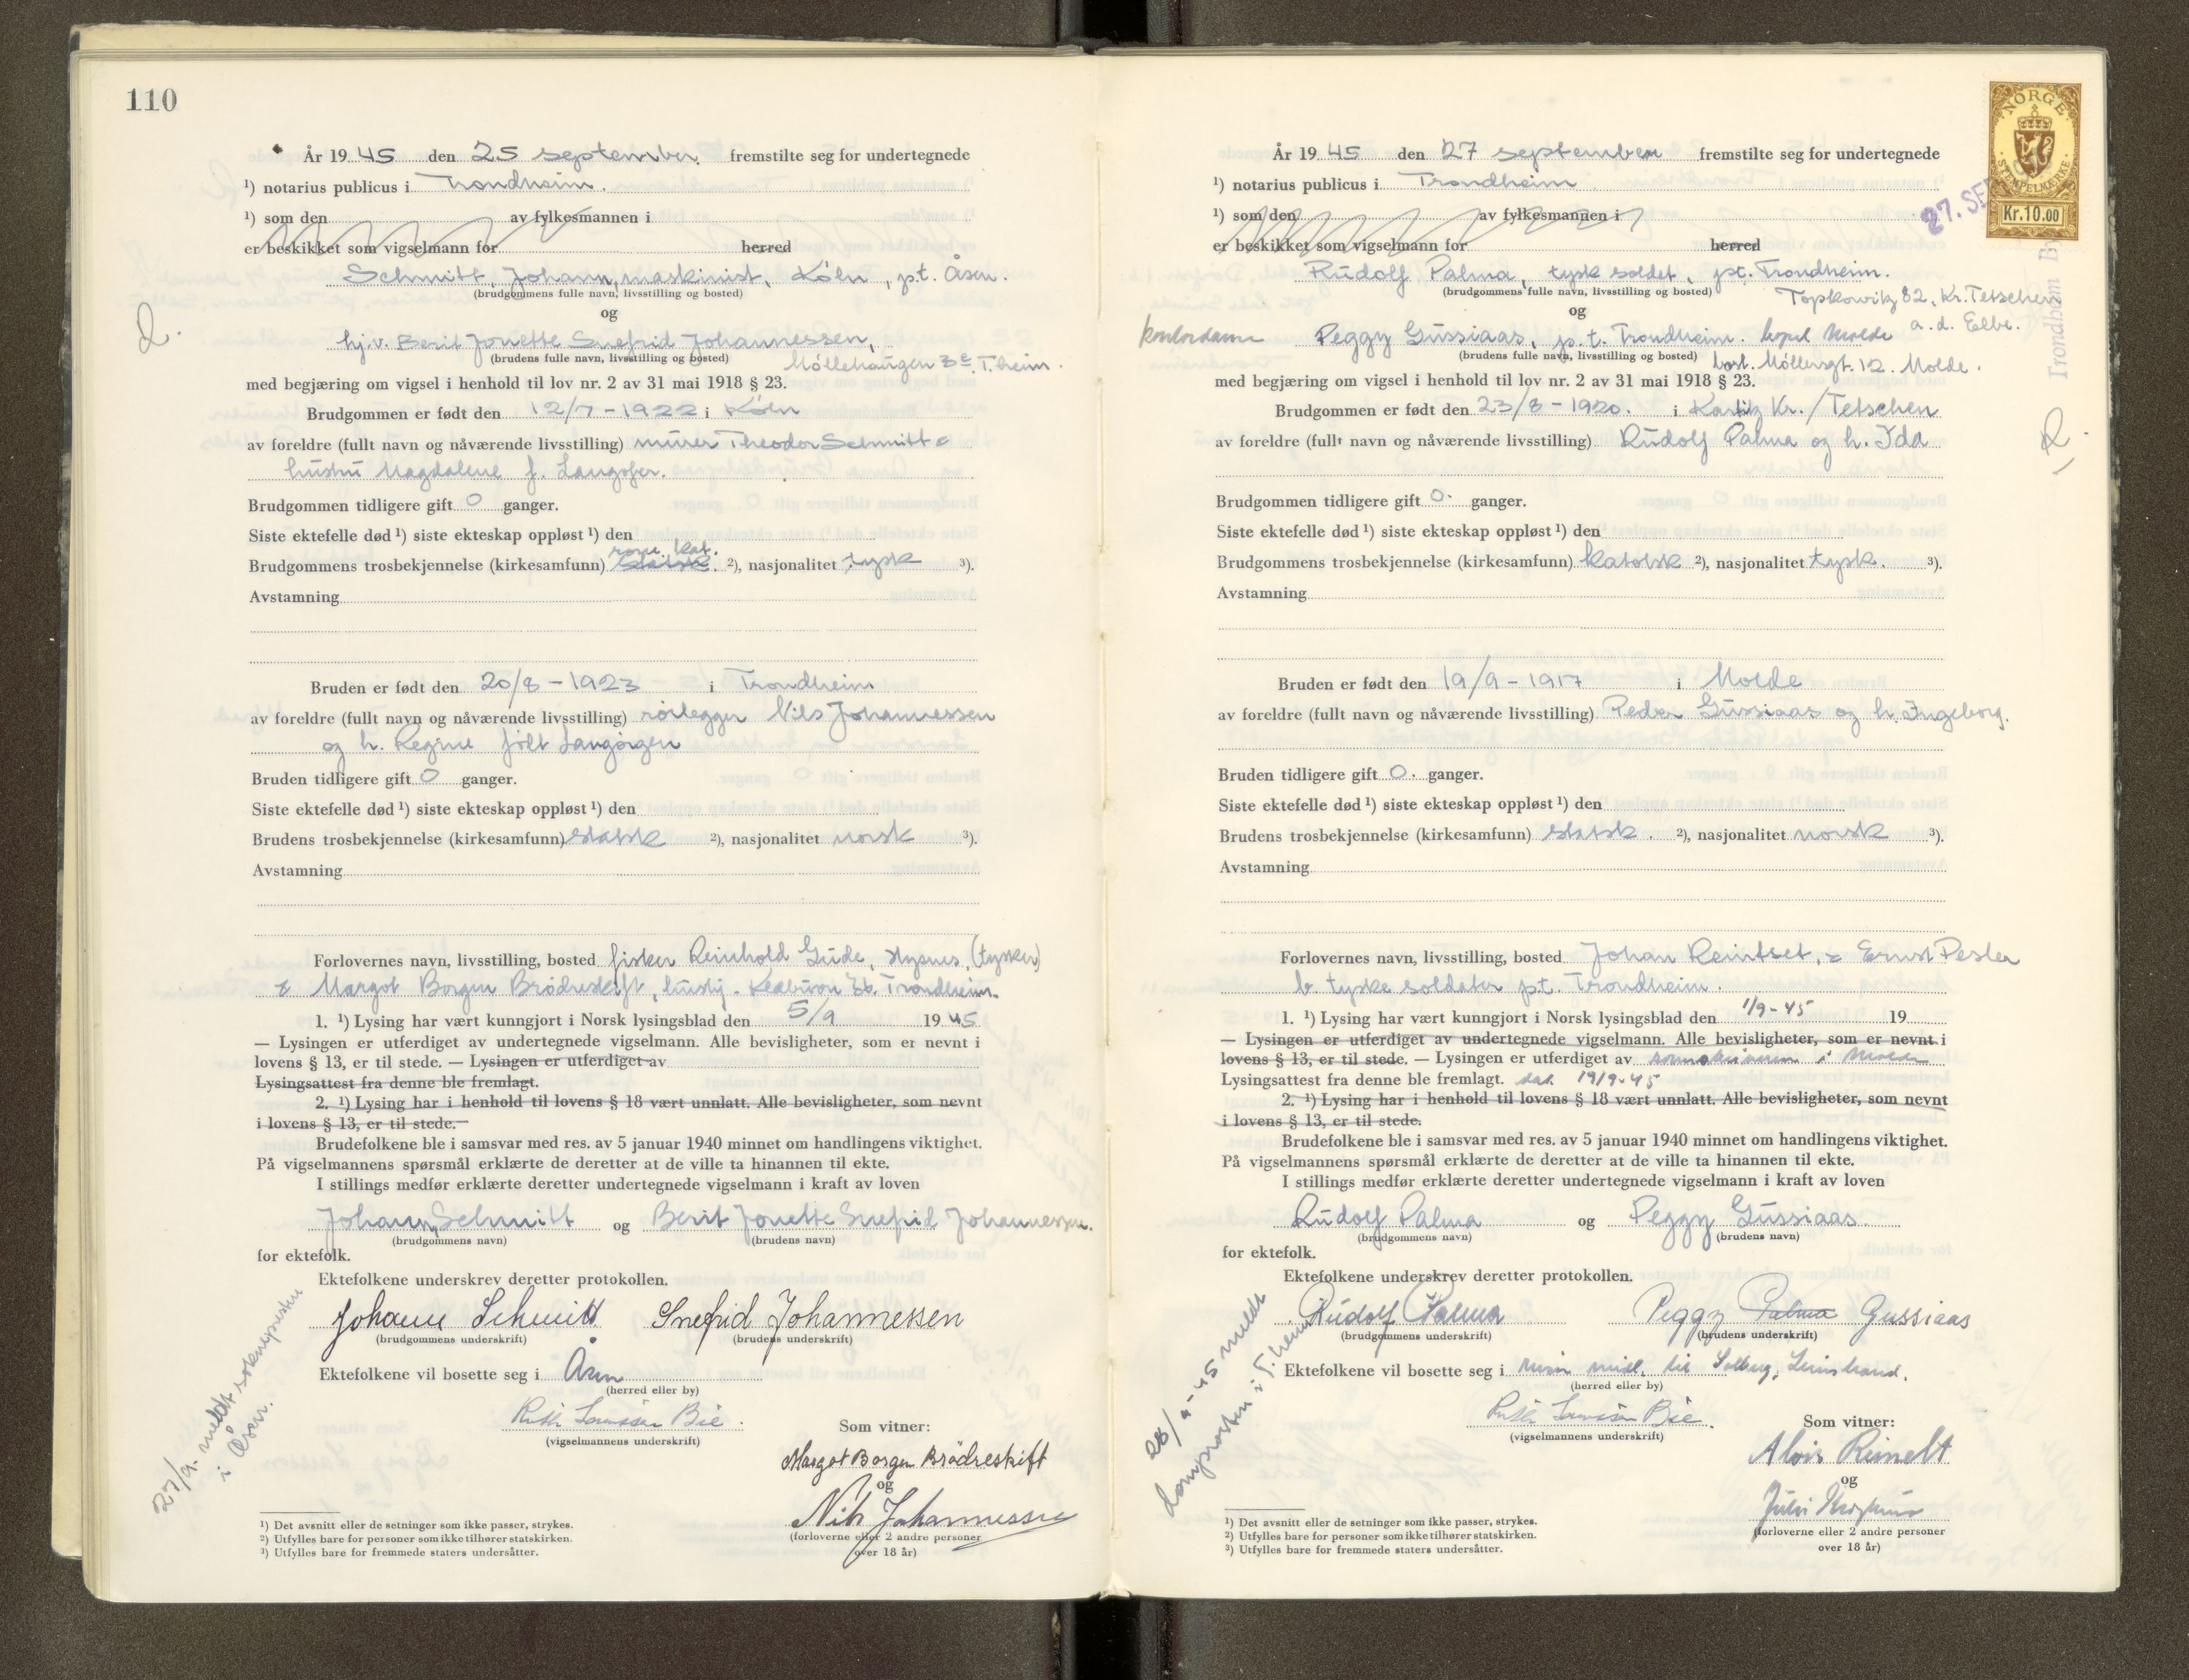 110
År 1945 den 25 september fremstilte seg for undertegnede
¹) notarius publicus i Trondheim.
¹) som den av fylkesmannen i
er beskikket som vigselmann for herred
Schmitt, Johann, maskinist, Köln, p.t. Åsen.
(brudgommens fulle navn, livsstilling og bosted)
og
hj.v. Berit Jonette Snefrid Johannessen,
(brudens fulle navn, livsstilling og bosted)
Møllehaugen 3c T.heim.
med begjæring om vigsel i henhold til lov nr. 2 av 31 mai 1918 § 23.
Brudgommen er født den 12/7 - 1922 i Köln
av foreldre (fullt navn og nåværende livsstilling) murer Theodor Schmitt &
hustru Magdalene f.
Brudgommen tidligere gift 0 ganger.
Siste ektefelle død ¹) siste ekteskap oppløst ¹) den
rom. kat.
Brudgommens trosbekjennelse (kirkesamfunn) statsk. ²), nasjonalitet tysk ³).
Avstamning
Bruden er født den 20/8 - 1923 i Trondheim
av foreldre (fullt navn og nåværende livsstilling) rørlegger Nils Johannessen
og h. Regine født Langørgen
Bruden tidligere gift 0 ganger.
Siste ektefelle død ¹) siste ekteskap oppløst ¹) den
Brudens trosbekjennelse (kirkesamfunn) statsk ²), nasjonalitet norsk ³).
Avstamning
Forlovernes navn, livsstilling, bosted fisker Reinhold Gude, Hysnes, (tysker)
& Margot Borgen Brødreskift, husbj. 36. Trondheim.
1. ¹) Lysing har vært kunngjort i Norsk lysingsblad den 5/9 1945
— Lysingen er utferdiget av undertegnede vigselmann. Alle bevisligheter, som er nevnt i
lovens § 13, er til stede. — Lysingen er utferdiget av
Lysingsattest fra denne ble fremlagt.
2. ¹) Lysing har i henhold til lovens § 18 vært unnlatt. Alle bevisligheter, som nevnt
i lovens § 13, er til stede.—
Brudefolkene ble i samsvar med res. av 5 januar 1940 minnet om handlingens viktighet.
På vigselmannens spørsmål erklærte de deretter at de ville ta hinannen til ekte.
I stillings medfør erklærte deretter undertegnede vigselmann i kraft av loven
Johann Schmitt og Berit Jonette Snefrid Johannessen.
(brudgommens navn) (brudens navn)
for ektefolk.
Ektefolkene underskrev deretter protokollen.
Johann Schmitt Snefrid Johannessen
(brudgommens underskrift) (brudens underskrift)
Ektefolkene vil bosette seg i Åsen
(herred eller by)
27/9. meldt soknepresten
i Åsen.
Ruth Laussen Bie.
(vigselmannens underskrift)
Som vitner:
Margot Borgen Brödreskift
og
Nils Johannessen
(forloverne eller 2 andre personer
over 18 år)
¹) Det avsnitt eller de setninger som ikke passer, strykes.
²) Utfylles bare for personer som ikke tilhører statskirken.
³) Utfylles bare for fremmede staters undersåtter.
NORGE
STEMPELMERKE
Kr.10.00
27. SE
Trondheim By
År 1945 den 27 september fremstilte seg for undertegnede
¹) notarius publicus i Trondheim
¹) som den av fylkesmannen i
er beskikket som vigselmann for herred
Rudolf Palma, tysk soldat, pt. Trondheim.
(brudgommens fulle navn, livsstilling og bosted)
Topkowitz 82, Kr. Tetschen
a.d. Elbe.
og
kontordame Peggy Gussiaas, p.t. Trondheim. Molde
(brudens fulle navn, livsstilling og bosted)
bost. Møllersgt. 12. Molde.
med begjæring om vigsel i henhold til lov nr. 2 av 31 mai 1918 § 23.
Brudgommen er født den 23/8 - 1920. i Kr./Tetschen
av foreldre (fullt navn og nåværende livsstilling) Rudolf Palma og h. Ida
Brudgommen tidligere gift 0. ganger.
Siste ektefelle død ¹) siste ekteskap oppløst ¹) den
Brudgommens trosbekjennelse (kirkesamfunn) katolsk ²), nasjonalitet tysk. ³).
Avstamning
Bruden er født den 19/9 - 1917 i Molde
av foreldre (fullt navn og nåværende livsstilling) Peder Gussiaas og h. Ingeborg.
Bruden tidligere gift 0. ganger.
Siste ektefelle død ¹) siste ekteskap oppløst ¹) den
Brudens trosbekjennelse (kirkesamfunn) statsk. ²), nasjonalitet norsk ³).
Avstamning
Forlovernes navn, livsstilling, bosted Johan Reintset, & Ernst Pesler
b. tyske soldater pt. Trondheim.
1. ¹) Lysing har vært kunngjort i Norsk lysingsblad den 1/9-45 19
— Lysingen er utferdiget av undertegnede vigselmann. Alle bevisligheter, som er nevnt i
lovens § 13, er til stede. — Lysingen er utferdiget av i Molde
Lysingsattest fra denne ble fremlagt. dat. 19/9-45
2. ¹) Lysing har i henhold til lovens § 18 vært unnlatt. Alle bevisligheter, som nevnt
i lovens § 13, er til stede.
Brudefolkene ble i samsvar med res. av 5 januar 1940 minnet om handlingens viktighet.
På vigselmannens spørsmål erklærte de deretter at de ville ta hinannen til ekte.
I stillings medfør erklærte deretter undertegnede vigselmann i kraft av loven
Rudolf Palma og Peggy Gussiaas
(brudgommens navn) (brudens navn)
for ektefolk.
Ektefolkene underskrev deretter protokollen.
Rudolf Palma Peggy Palma Gussiaas
(brudgommens underskrift) (brudens underskrift)
Ektefolkene vil bosette seg i
(herred eller by)
28/9-45 meldt
domprosten i T.heim
Ruth Laussen Bie.
(vigselmannens underskrift)
Som vitner:
Alois Reinelt
og
(forloverne eller 2 andre personer
over 18 år)
¹) Det avsnitt eller de setninger som ikke passer, strykes.
²) Utfylles bare for personer som ikke tilhører statskirken.
³) Utfylles bare for fremmede staters undersåtter.